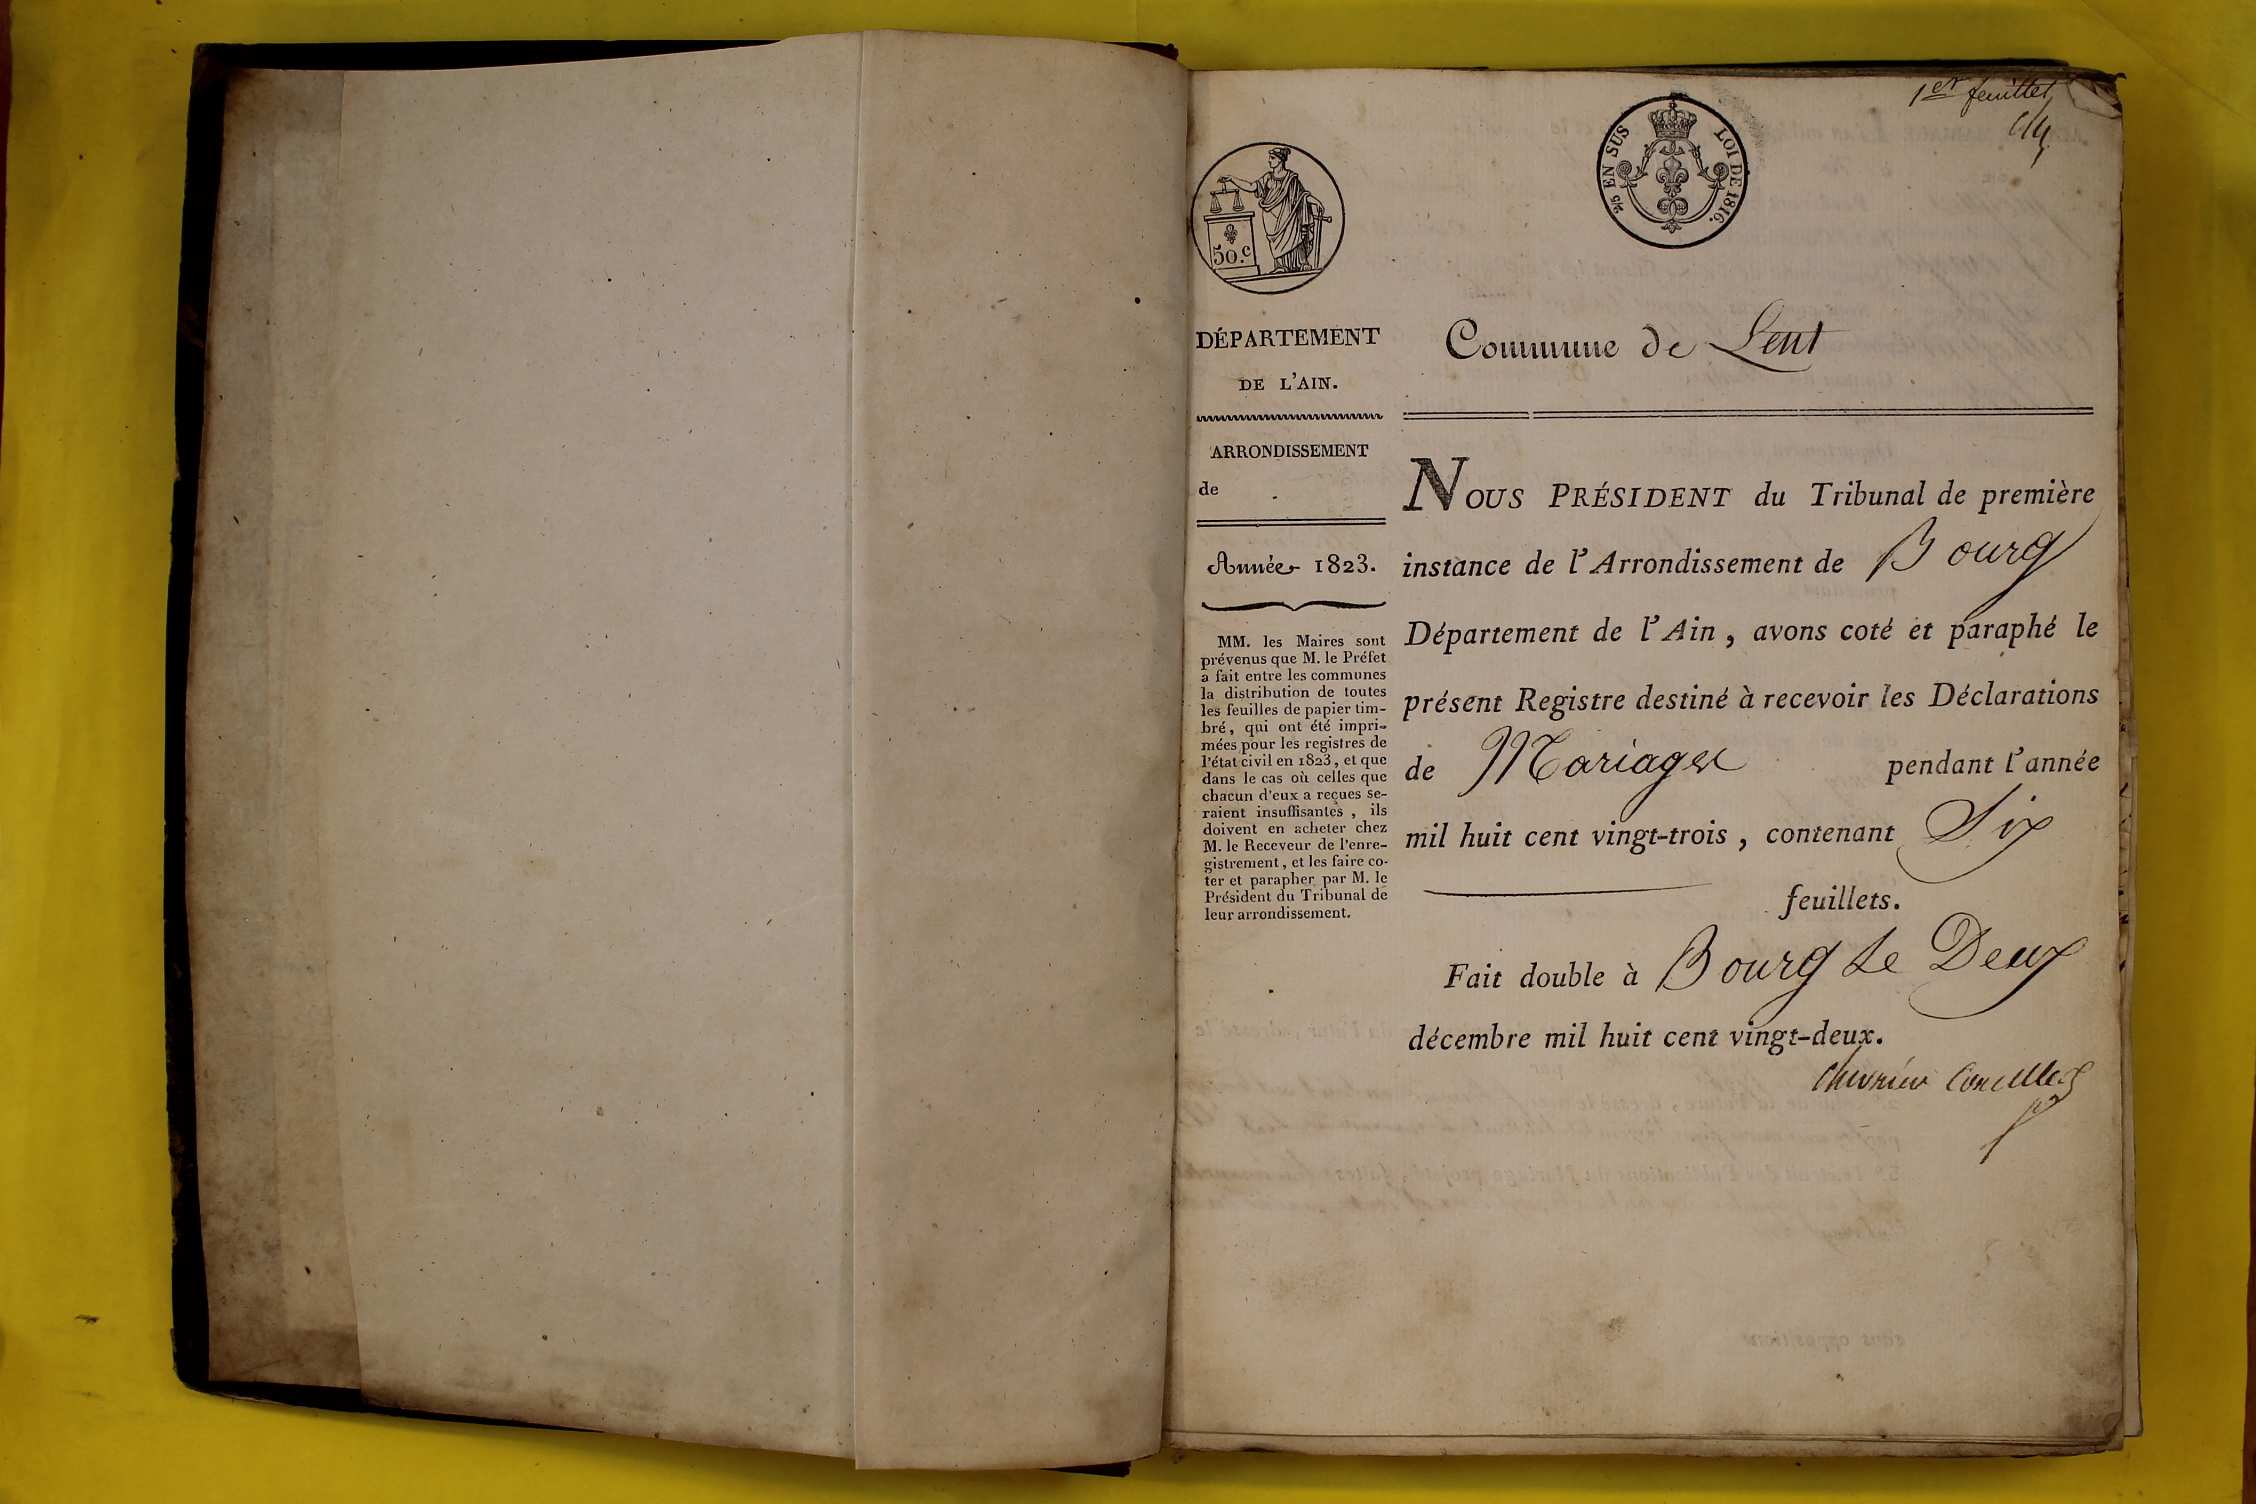 1er feuillet
2/5 EN SUS LOI DE 1816.
50.c
DÉPARTEMENT
DE L'AIN.
ARRONDISSEMENT
de
Année 1823.
MM. les Maires sont
prévenus que M. le Préfet
a fait entre les communes
la distribution de toutes
les feuilles de papier tim-
bré, qui ont été impri-
mées pour les registres de
l'état civil en 1823, et que
dans le cas où celles que
chacun d'eux a reçues se-
raient insuffisantes, ils
doivent en acheter chez
M. le Receveur de l'enre-
gistrement, et les faire co-
ter et parapher par M. le
Président du Tribunal de
leur arrondissement.
Commune de Lent
NOUS PRÉSIDENT du Tribunal de première
instance de l'Arrondissement de Bourg
Département de l'Ain, avons coté et paraphé le
présent Registre destiné à recevoir les Déclarations
de Mariages pendant l'année
mil huit cent vingt-trois, contenant Six
feuillets.
Fait double à Bourg Le Deux
décembre mil huit cent vingt-deux.